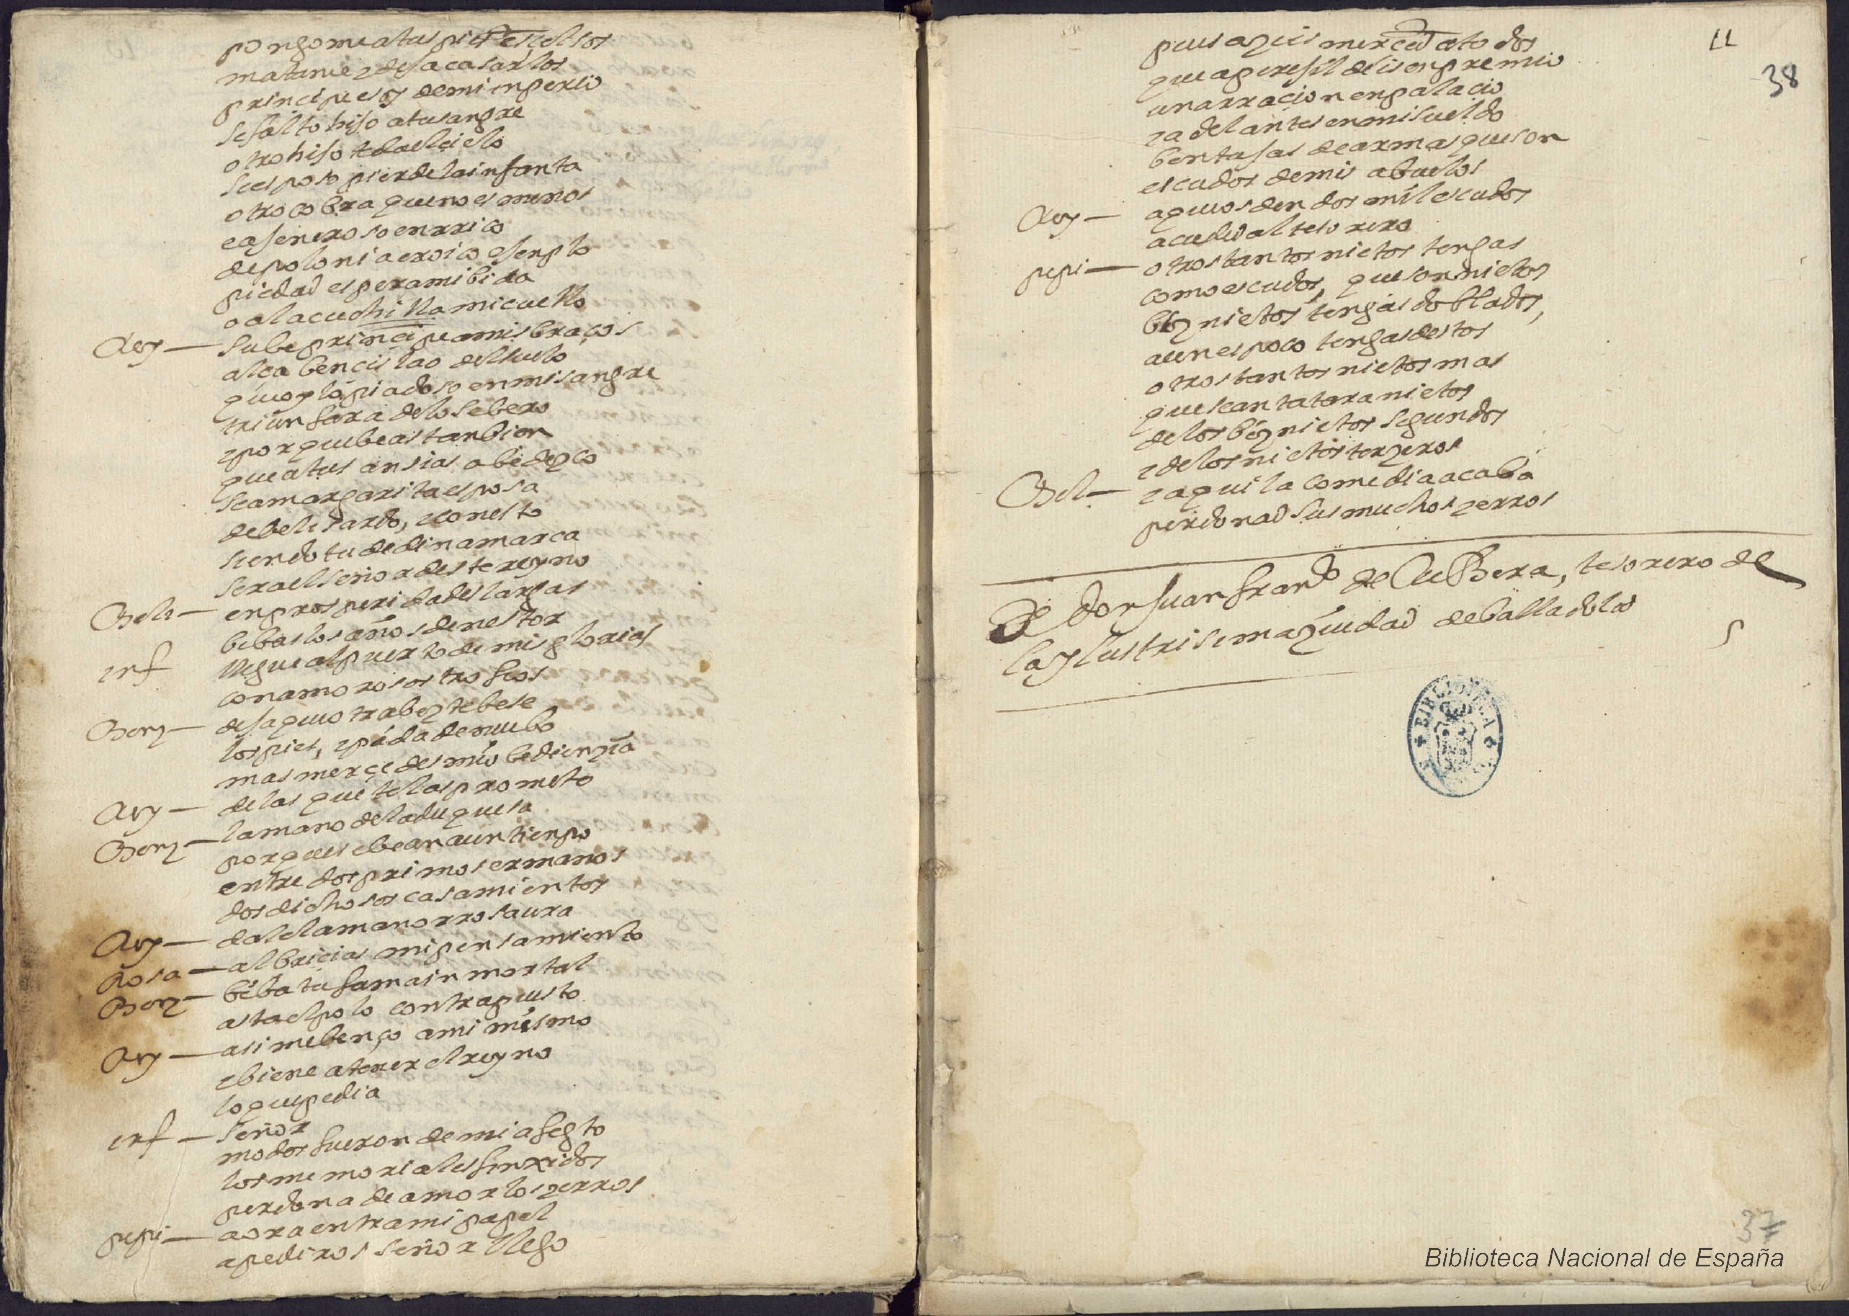 pongome a tus pies excelsos
matame y desa casa los
principes de mi inperio
se falto hijo a tu sangre
otro hijo te da el cielo
si esposo pierde la infanta
otro cobra que no es menos
ea jeneroso enrrico
de polonia eroico ejenplo
piedad espera mi bida
o a la cuchilla mi cuello
Rey — sube principe a mis braços
alça bencislao del suelo
que lo piadoso en mi sangre
triunfara de lo sebero
y porque beas tanbien
que a tus ansias obedezco
sea margarita esposa
de belisardo, y con esto
siendo tu de dinamarca
sera el señor deste reyno
Beli — en prosperidades largas
bibas los años de nestor
inf llegue al puerto de mis glorias
con amorosos trofeos
Benz — deja que otra bez te bese
los pies, y pida de nuebo
mas merçedes mi obedienzia
Rey — de las que te las prometo
Benz — la mano de la duquesa
porque se bean a un tienpo
entre dos primos ermanos
dos dichosos casamientos
Rey — dale la mano rrosaura
Rosa — albricias mi pensamiento
Benz — biba tu fama inmortal
asta el polo contrapuesto
Rey — asi me benço a mi mesmo
y biene a tener el reyno
lo que pedia
inf — señor
modos fueron de mi afegto
los memoriales finxidos
perdona de amor los yerros
pepi — aora entra mi papel
a pediros señor llego
11
38
pues azeis merced a todos
que a perejil deis en premio
una rracion en palacio
y adelantes en mi sueldo
bentajas de armas que son
escudos de mis abuelos
Rey — a que os den dos mil escudos
acudid al tesorero
pepi — otros tantos nietos tengas
como escudos, que son nietos
biznietos tengas doblados,
aun es poco tengas destos
otros tantos nietos mas
que sean tataranietos
de los biznietos segundos
y de los nietos terzeros
Bel — y aqui la comedia acaba
perdonad sus muchos yerros
De don Juan franco de Ribera, tesorero de
la ylustrisima ziudad de balladolid
BIBLIOTECA
37
Biblioteca Nacional de España